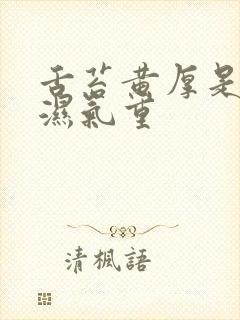 舌苔黄厚是
濕氣重
清楓語